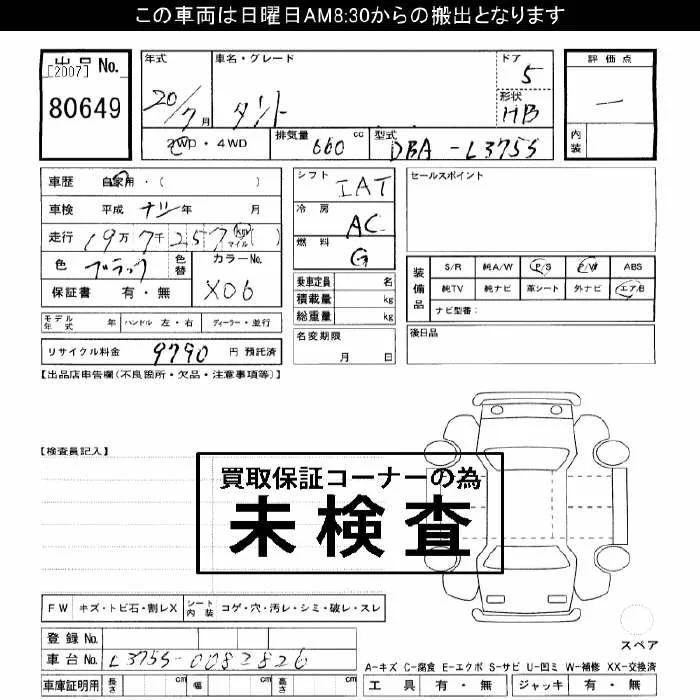 この車両は日曜日AM8:30からの搬出となります
出品No.
[2007]
80649
年式
20/7月
車名・グレード
タント
ドア
5
形状
HB
評価点
—
内装
2WD・4WD
排気量 660 cc
型式 DBA-L375S
車歴 自家用・( )
車検 平成 ナシ 年 月
走行 19万7千257 km マイル ( )
色 ブラック
色替
カラーNo.
X06
保証書 有・無
シフト
IAT
冷房
AC
燃料
G
乗車定員 名
積載量 kg
総重量 kg
名変期限
月 日
セールスポイント
装備品
S/R 純A/W P/S P/W ABS
純TV 純ナビ 革シート 外ナビ エアB
ナビ型番:
後日品
モデル年式 年 ハンドル 左・右 ディーラー・並行
リサイクル料金 9790 円 預託済
【出品店申告欄(不良箇所・欠品・注意事項等)】
【検査員記入】
買取保証コーナーの為
未検査
FW キズ・トビ石・割レX シート内装 コゲ・穴・汚レ・シミ・破レ・スレ
登録No.
車台No. L375S-0082826
車庫証明用 長さ cm 幅 cm 高さ cm
スペア
A-キズ C-腐食 E-エクボ S-サビ U-凹ミ W-補修 XX-交換済
工具 有・無 ジャッキ 有・無